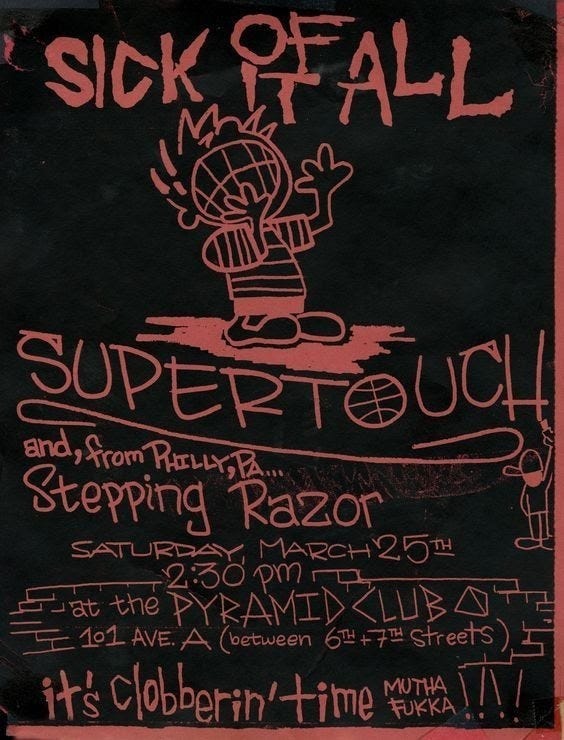 SICK OF IT ALL
SUPERTOUCH
and, from PHILLY, PA...
Stepping Razor
SATURDAY, MARCH 25TH
2:30 pm
at the PYRAMID CLUB
101 AVE. A (between 6TH + 7TH Streets)
it's clobberin' time MUTHA FUKKA !!!!